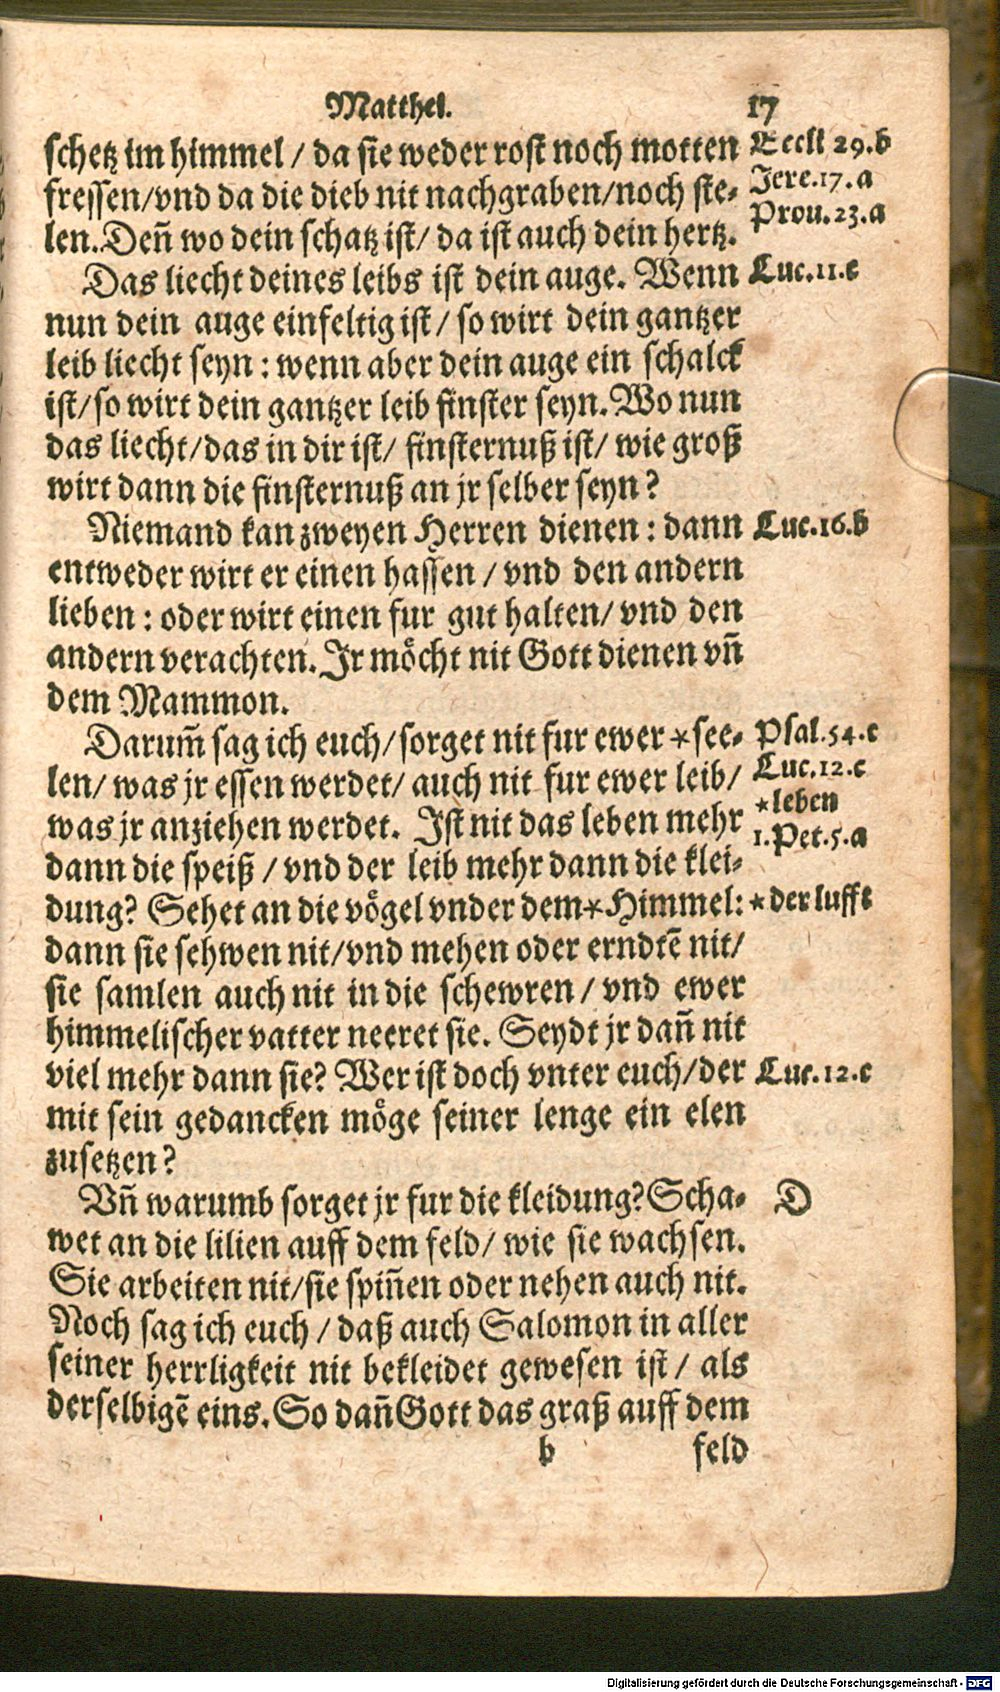 Matthei. 17
schetz im himmel / da sie weder rost noch motten
Eccli 29.b
fressen/vnd da die dieb nit nachgraben/noch ste-
Jere.17.a
len. Den̄ wo dein schatz ist/ da ist auch dein hertz.
Prou.23.a
Das liecht deines leibs ist dein auge. Wenn
Luc.11.e
nun dein auge einfeltig ist / so wirt dein gantzer
leib liecht seyn : wenn aber dein auge ein schalck
ist/so wirt dein gantzer leib finster seyn. Wo nun
das liecht/das in dir ist/ finsternuß ist/ wie groß
wirt dann die finsternuß an jr selber seyn?
Niemand kan zweyen Herren dienen : dann
Luc.16.b
entweder wirt er einen hassen / vnd den andern
lieben : oder wirt einen fur gut halten/ vnd den
andern verachten. Jr möcht nit Gott dienen vn̄
dem Mammon.
Darum̄ sag ich euch/sorget nit fur ewer *see-
Psal.54.c
len/ was jr essen werdet/ auch nit fur ewer leib/
Luc.12.c
was jr anziehen werdet. Ist nit das leben mehr
*leben
1.Pet.5.a
dann die speiß / vnd der leib mehr dann die klei-
dung? Sehet an die vögel vnder dem*Himmel:
*der lufft
dann sie sehwen nit/vnd mehen oder erndtē nit/
sie samlen auch nit in die schewren / vnd ewer
himmelischer vatter neeret sie. Seydt jr dan̄ nit
viel mehr dann sie? Wer ist doch vnter euch/der
Luc.12.c
mit sein gedancken möge seiner lenge ein elen
zusetzen?
Vn̄ warumb sorget jr fur die kleidung? Scha-
D
wet an die lilien auff dem feld/ wie sie wachsen.
Sie arbeiten nit/sie spin̄en oder nehen auch nit.
Noch sag ich euch / daß auch Salomon in aller
seiner herrligkeit nit bekleidet gewesen ist / als
derselbigē eins. So dan̄ Gott das graß auff dem
b feld
Digitalisierung gefördert durch die Deutsche Forschungsgemeinschaft - DFG